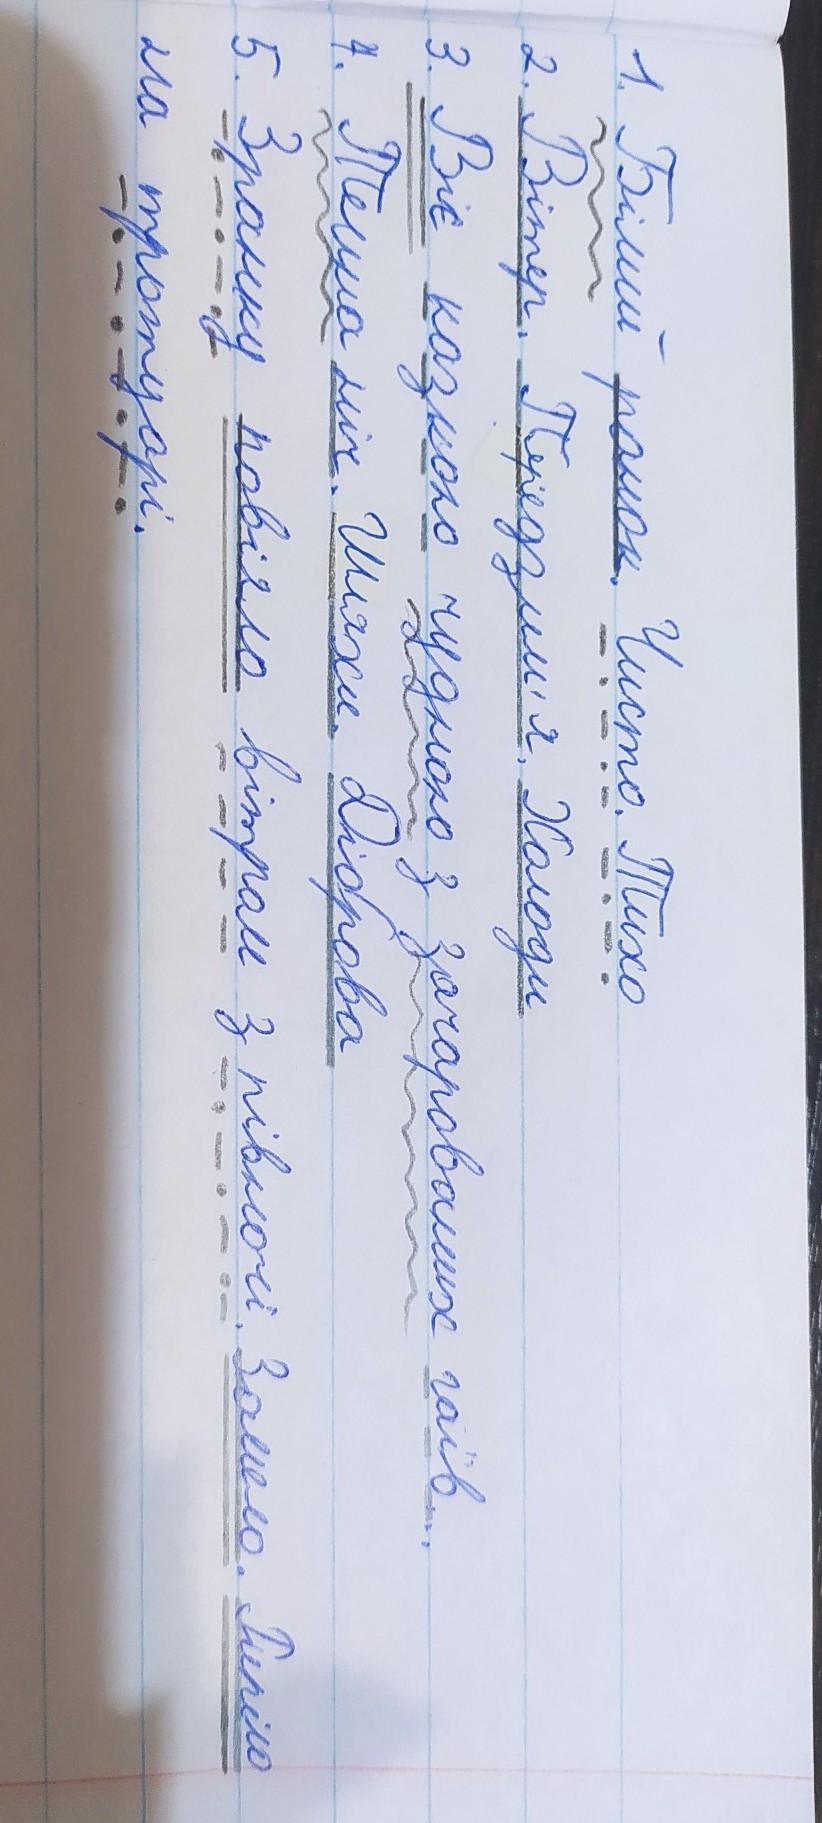 1. Білий ранок. Чисто. Тихо
2. Вітер. Передзим'я. Холоди
3. Віє казкою чудною з зачарованих гаїв...
4. Темна ніч. Шляхи. Діброва
5. Зранку повіяло вітром з півночі. Замело. Рипіло
на тротуарі.